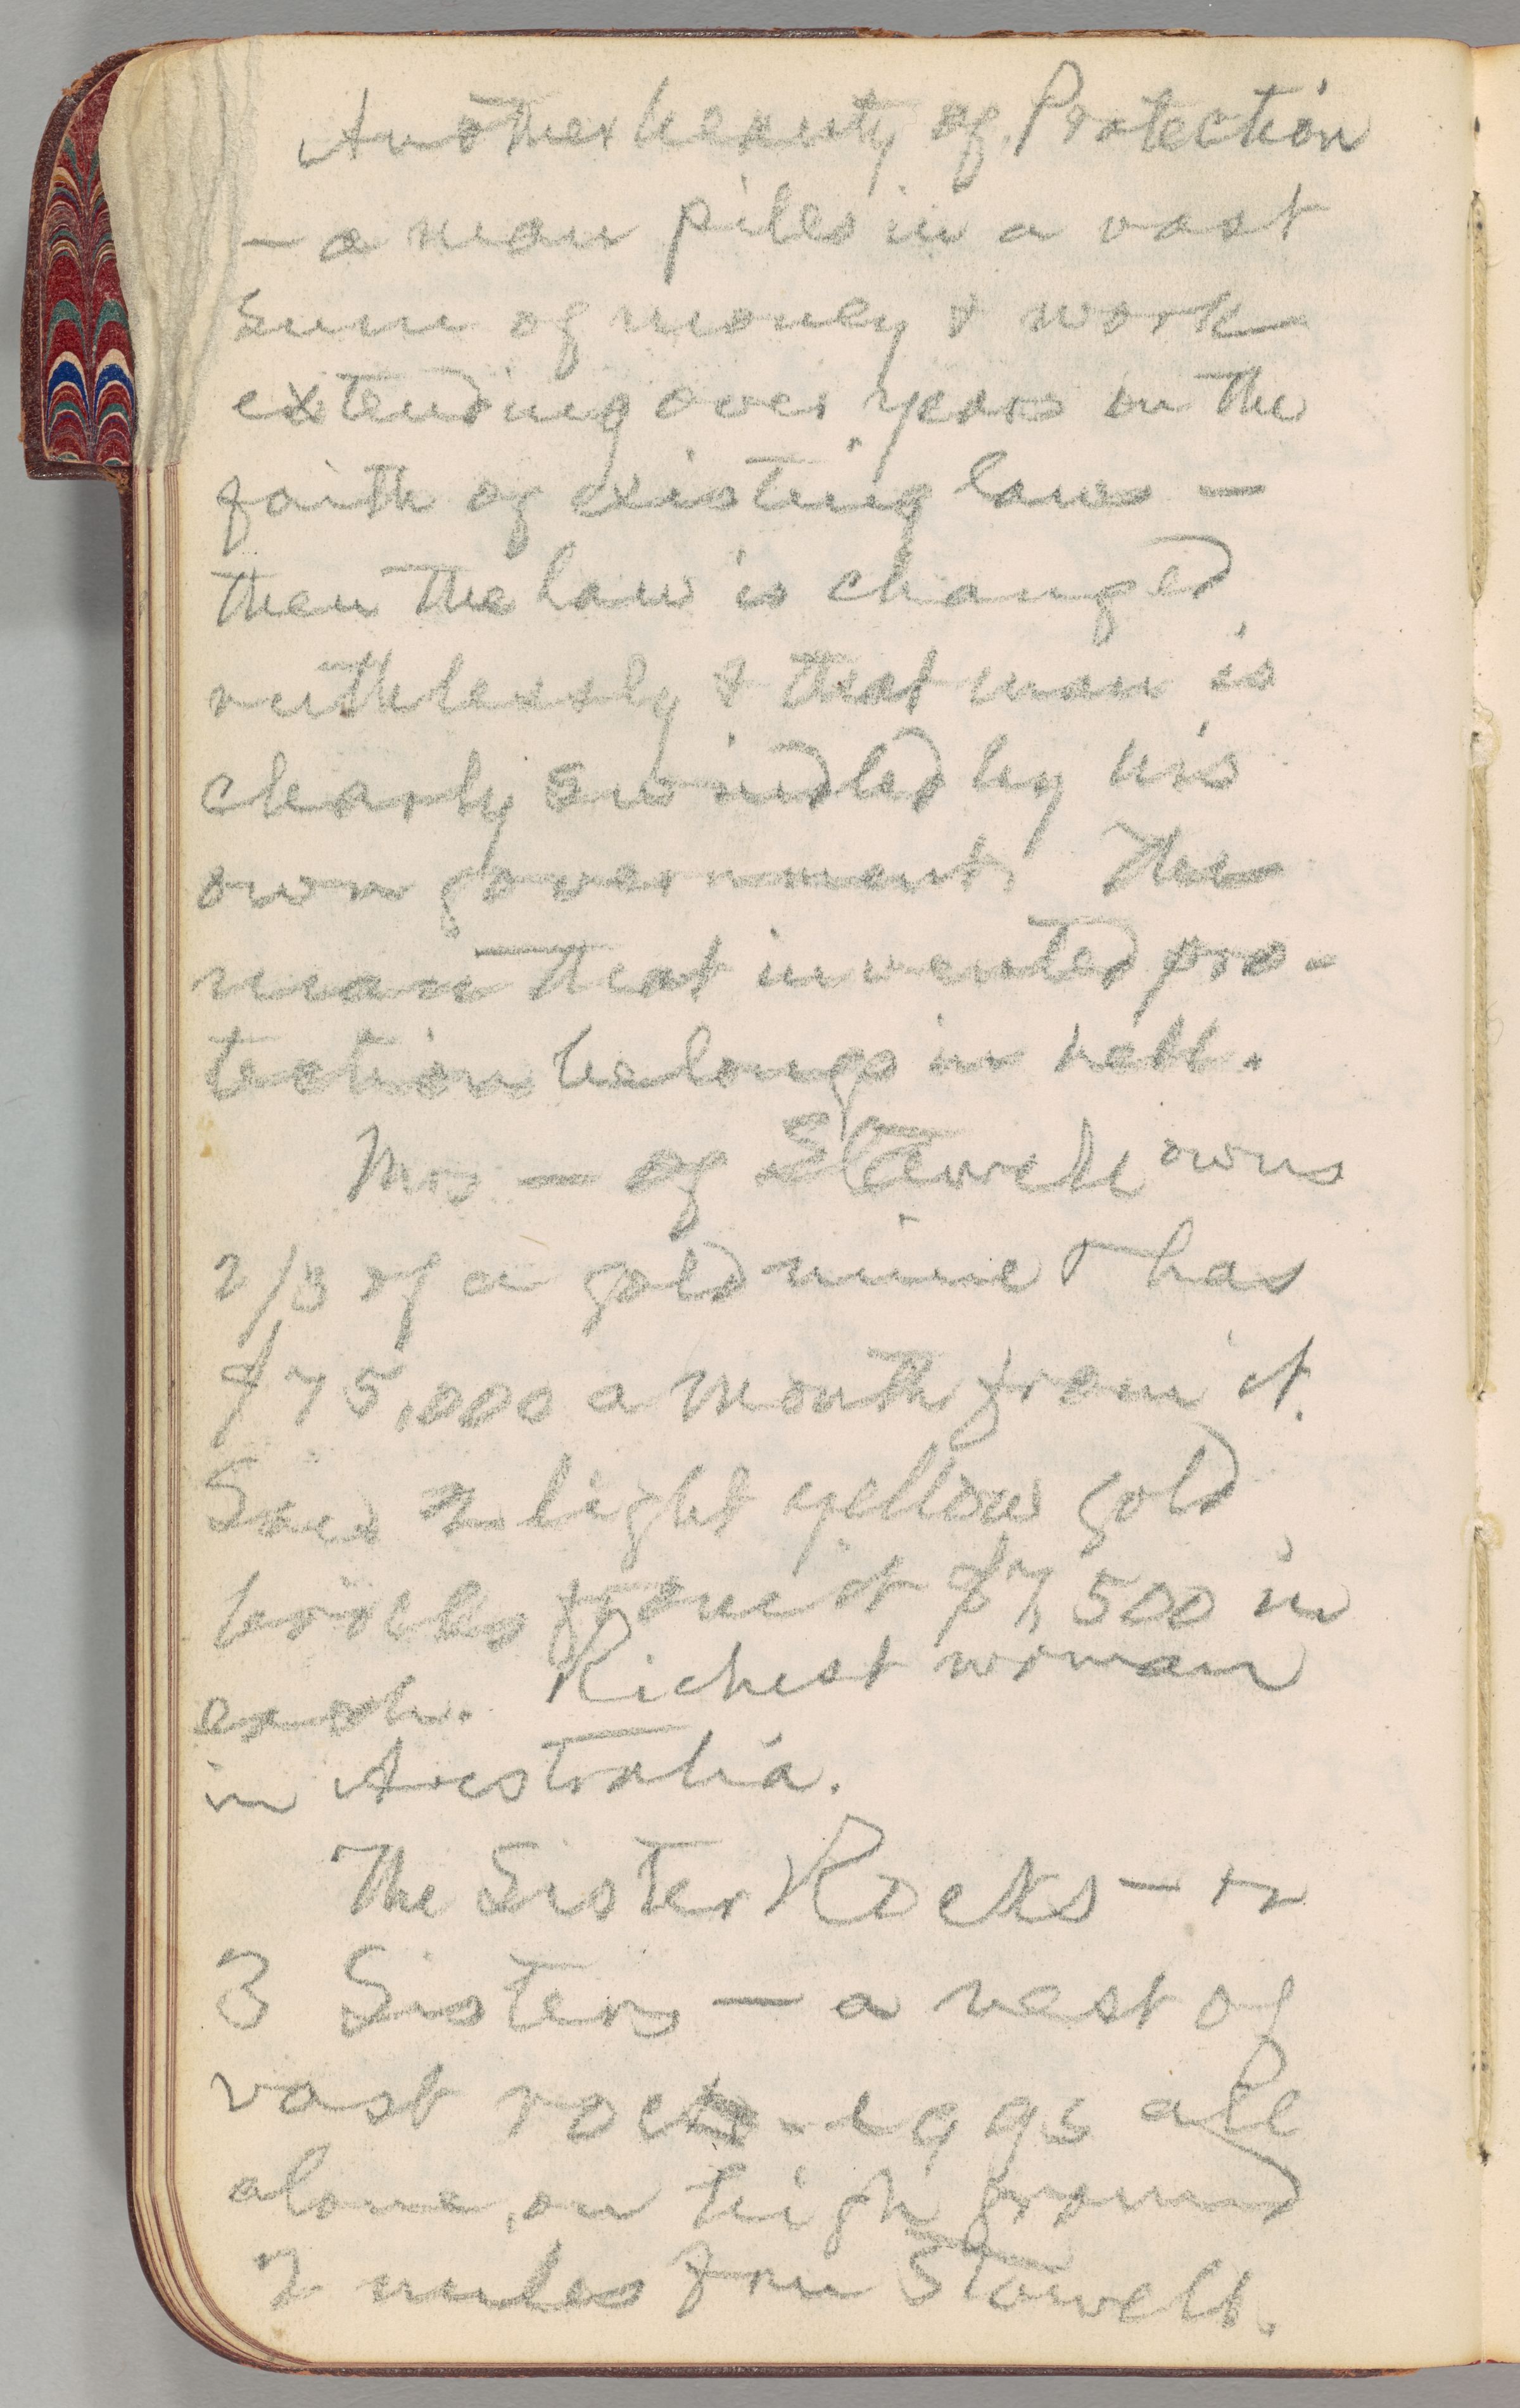 Another beauty of Protection
— a man piles in a vast
sum of money & work
extending over years on the
faith of existing laws —
then the law is changed
ruthlessly & that man is
clearly swindled by his
own government. The
man that invented pro-
tection belongs in hell.
Mrs — of Stawell owns
2/3 of a gold mine & has
$75,000 a month from it.
Saw 2 light yellow gold
bricks from it $7,500 in
each. Richest woman
in Australia.
The Sister Rocks — or
3 Sisters — a nest of
vast rock-eggs all
alone, on high ground
2 miles from Stawell.